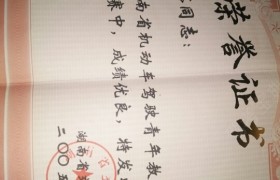 荣誉证书
同志：
南省机动车驾驶青年教
赛中，成绩优良，特发
湖南省
二〇〇五